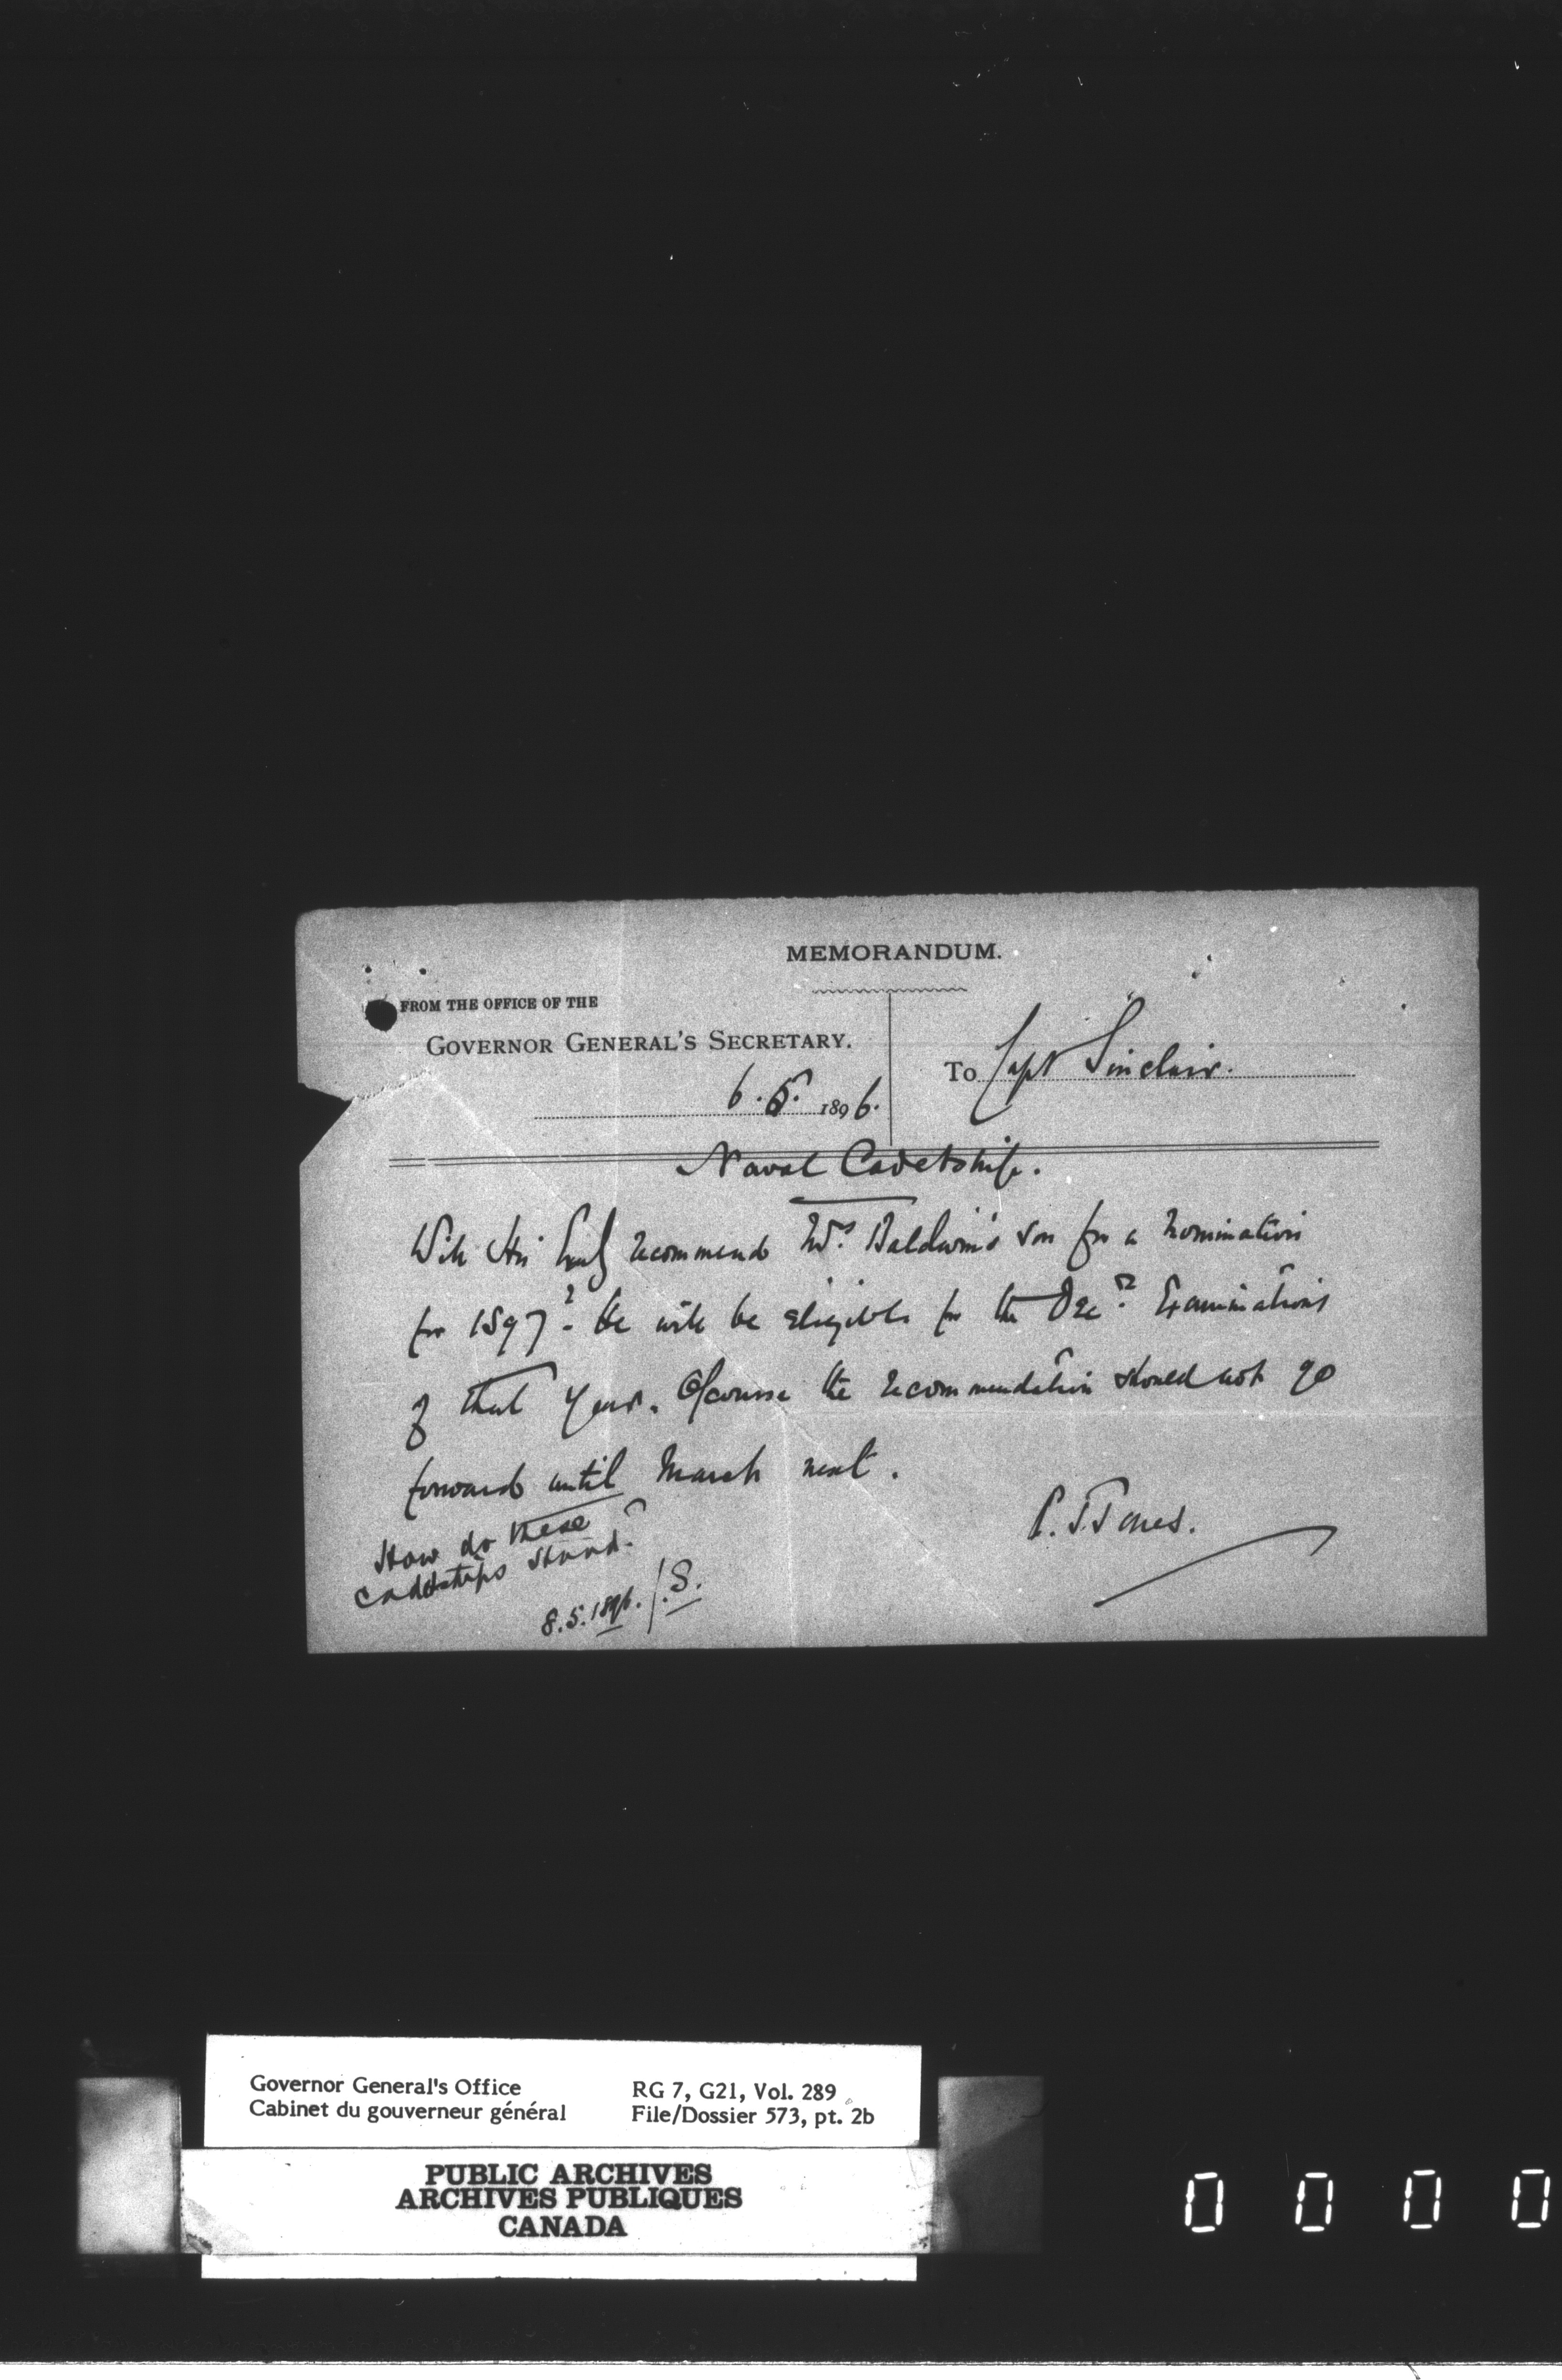 MEMORANDUM.
FROM THE OFFICE OF THE
GOVERNOR GENERAL'S SECRETARY.
6.5. 1896.
To Capt Sinclair.
Naval Cadetship.
Will His Excy recommend Mrs. Baldwin's son for a nomination
for 1897? - He will be eligible for the Decr. Examinations
of that year. Of course the recommendation should not go
forward until March next.
P. J. Jones.
How do these
cadetships stand?
8.5.1896. / S.
Governor General's Office
Cabinet du gouverneur général
RG 7, G21, Vol. 289
File/Dossier 573, pt. 2b
PUBLIC ARCHIVES
ARCHIVES PUBLIQUES
CANADA
0 0 0 0